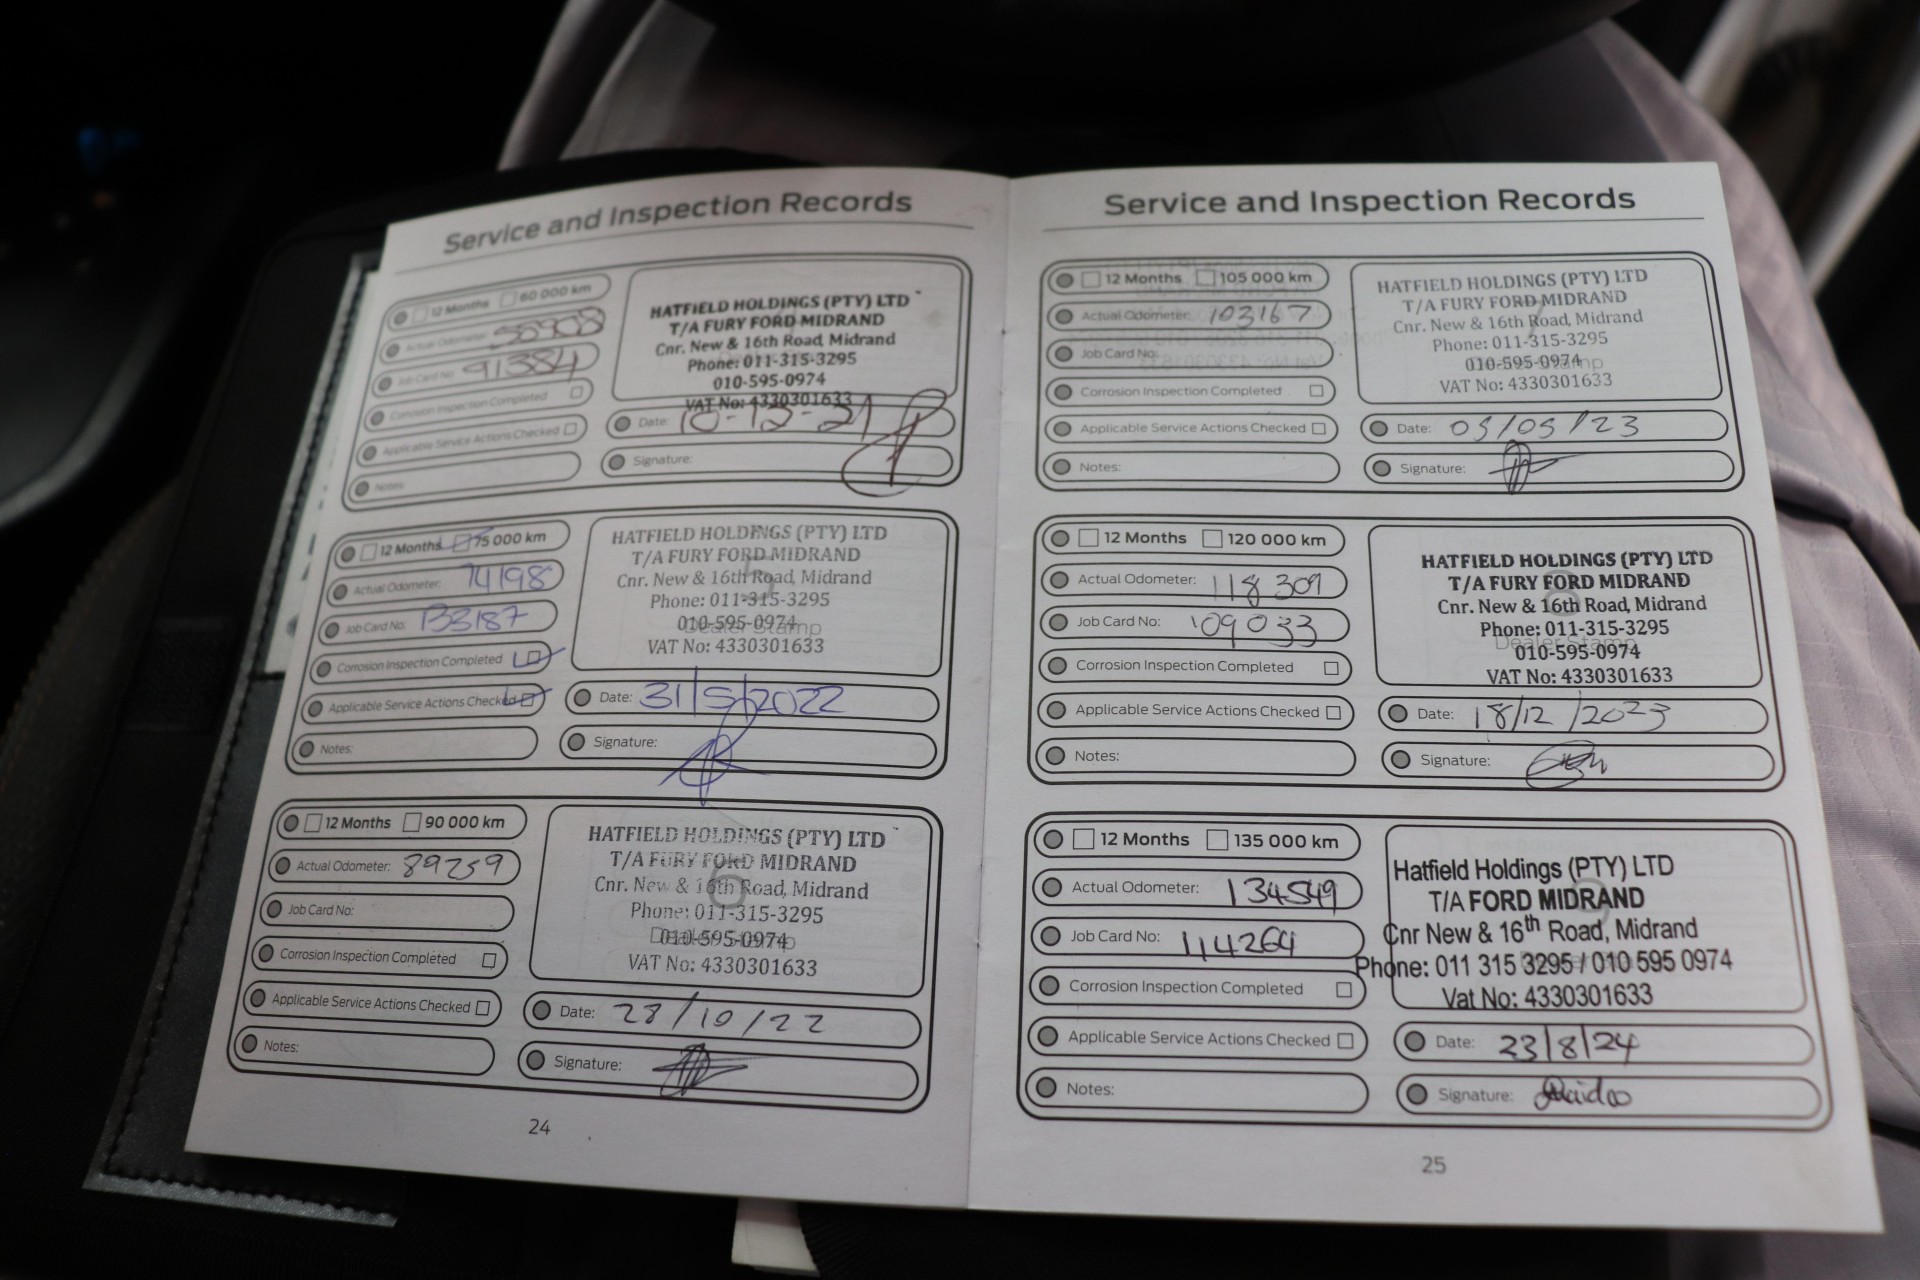 Service and Inspection Records
12 Months 60 000 km
Actual Odometer:
Job Card No: 91384
Corrosion Inspection Completed
Applicable Service Actions Checked
Notes:
HATFIELD HOLDINGS (PTY) LTD
T/A FURY FORD MIDRAND
Cnr. New & 16th Road, Midrand
Phone: 011-315-3295
010-595-0974
VAT No: 4330301633
Date: 10-12-21
Signature:
12 Months 75 000 km
Actual Odometer: 74198
Job Card No: B3187
Corrosion Inspection Completed
Applicable Service Actions Checked
Notes:
HATFIELD HOLDINGS (PTY) LTD
T/A FURY FORD MIDRAND
Cnr. New & 16th Road, Midrand
Phone: 011-315-3295
010-595-0974
Dealer Stamp
VAT No: 4330301633
Date: 31/5/2022
Signature:
12 Months 90 000 km
Actual Odometer: 89259
Job Card No:
Corrosion Inspection Completed
Applicable Service Actions Checked
Notes:
6
HATFIELD HOLDINGS (PTY) LTD
T/A FURY FORD MIDRAND
Cnr. New & 16th Road, Midrand
Phone: 011-315-3295
010-595-0974
Dealer Stamp
VAT No: 4330301633
Date: 28/10/22
Signature:
24
Service and Inspection Records
12 Months 105 000 km
Actual Odometer: 103167
Job Card No:
Corrosion Inspection Completed
Applicable Service Actions Checked
Notes:
7
HATFIELD HOLDINGS (PTY) LTD
T/A FURY FORD MIDRAND
Cnr. New & 16th Road, Midrand
Phone: 011-315-3295
010-595-0974
Dealer Stamp
VAT No: 4330301633
Date: 05/05/23
Signature:
12 Months 120 000 km
Actual Odometer: 118309
Job Card No: 109033
Corrosion Inspection Completed
Applicable Service Actions Checked
Notes:
8
HATFIELD HOLDINGS (PTY) LTD
T/A FURY FORD MIDRAND
Cnr. New & 16th Road, Midrand
Phone: 011-315-3295
Dealer Stamp
010-595-0974
VAT No: 4330301633
Date: 18/12/2023
Signature:
12 Months 135 000 km
Actual Odometer: 134549
Job Card No: 114264
Corrosion Inspection Completed
Applicable Service Actions Checked
Notes:
9
Hatfield Holdings (PTY) LTD
T/A FORD MIDRAND
Cnr New & 16th Road, Midrand
Phone: 011 315 3295 / 010 595 0974
Vat No: 4330301633
Date: 23/8/24
Signature:
25